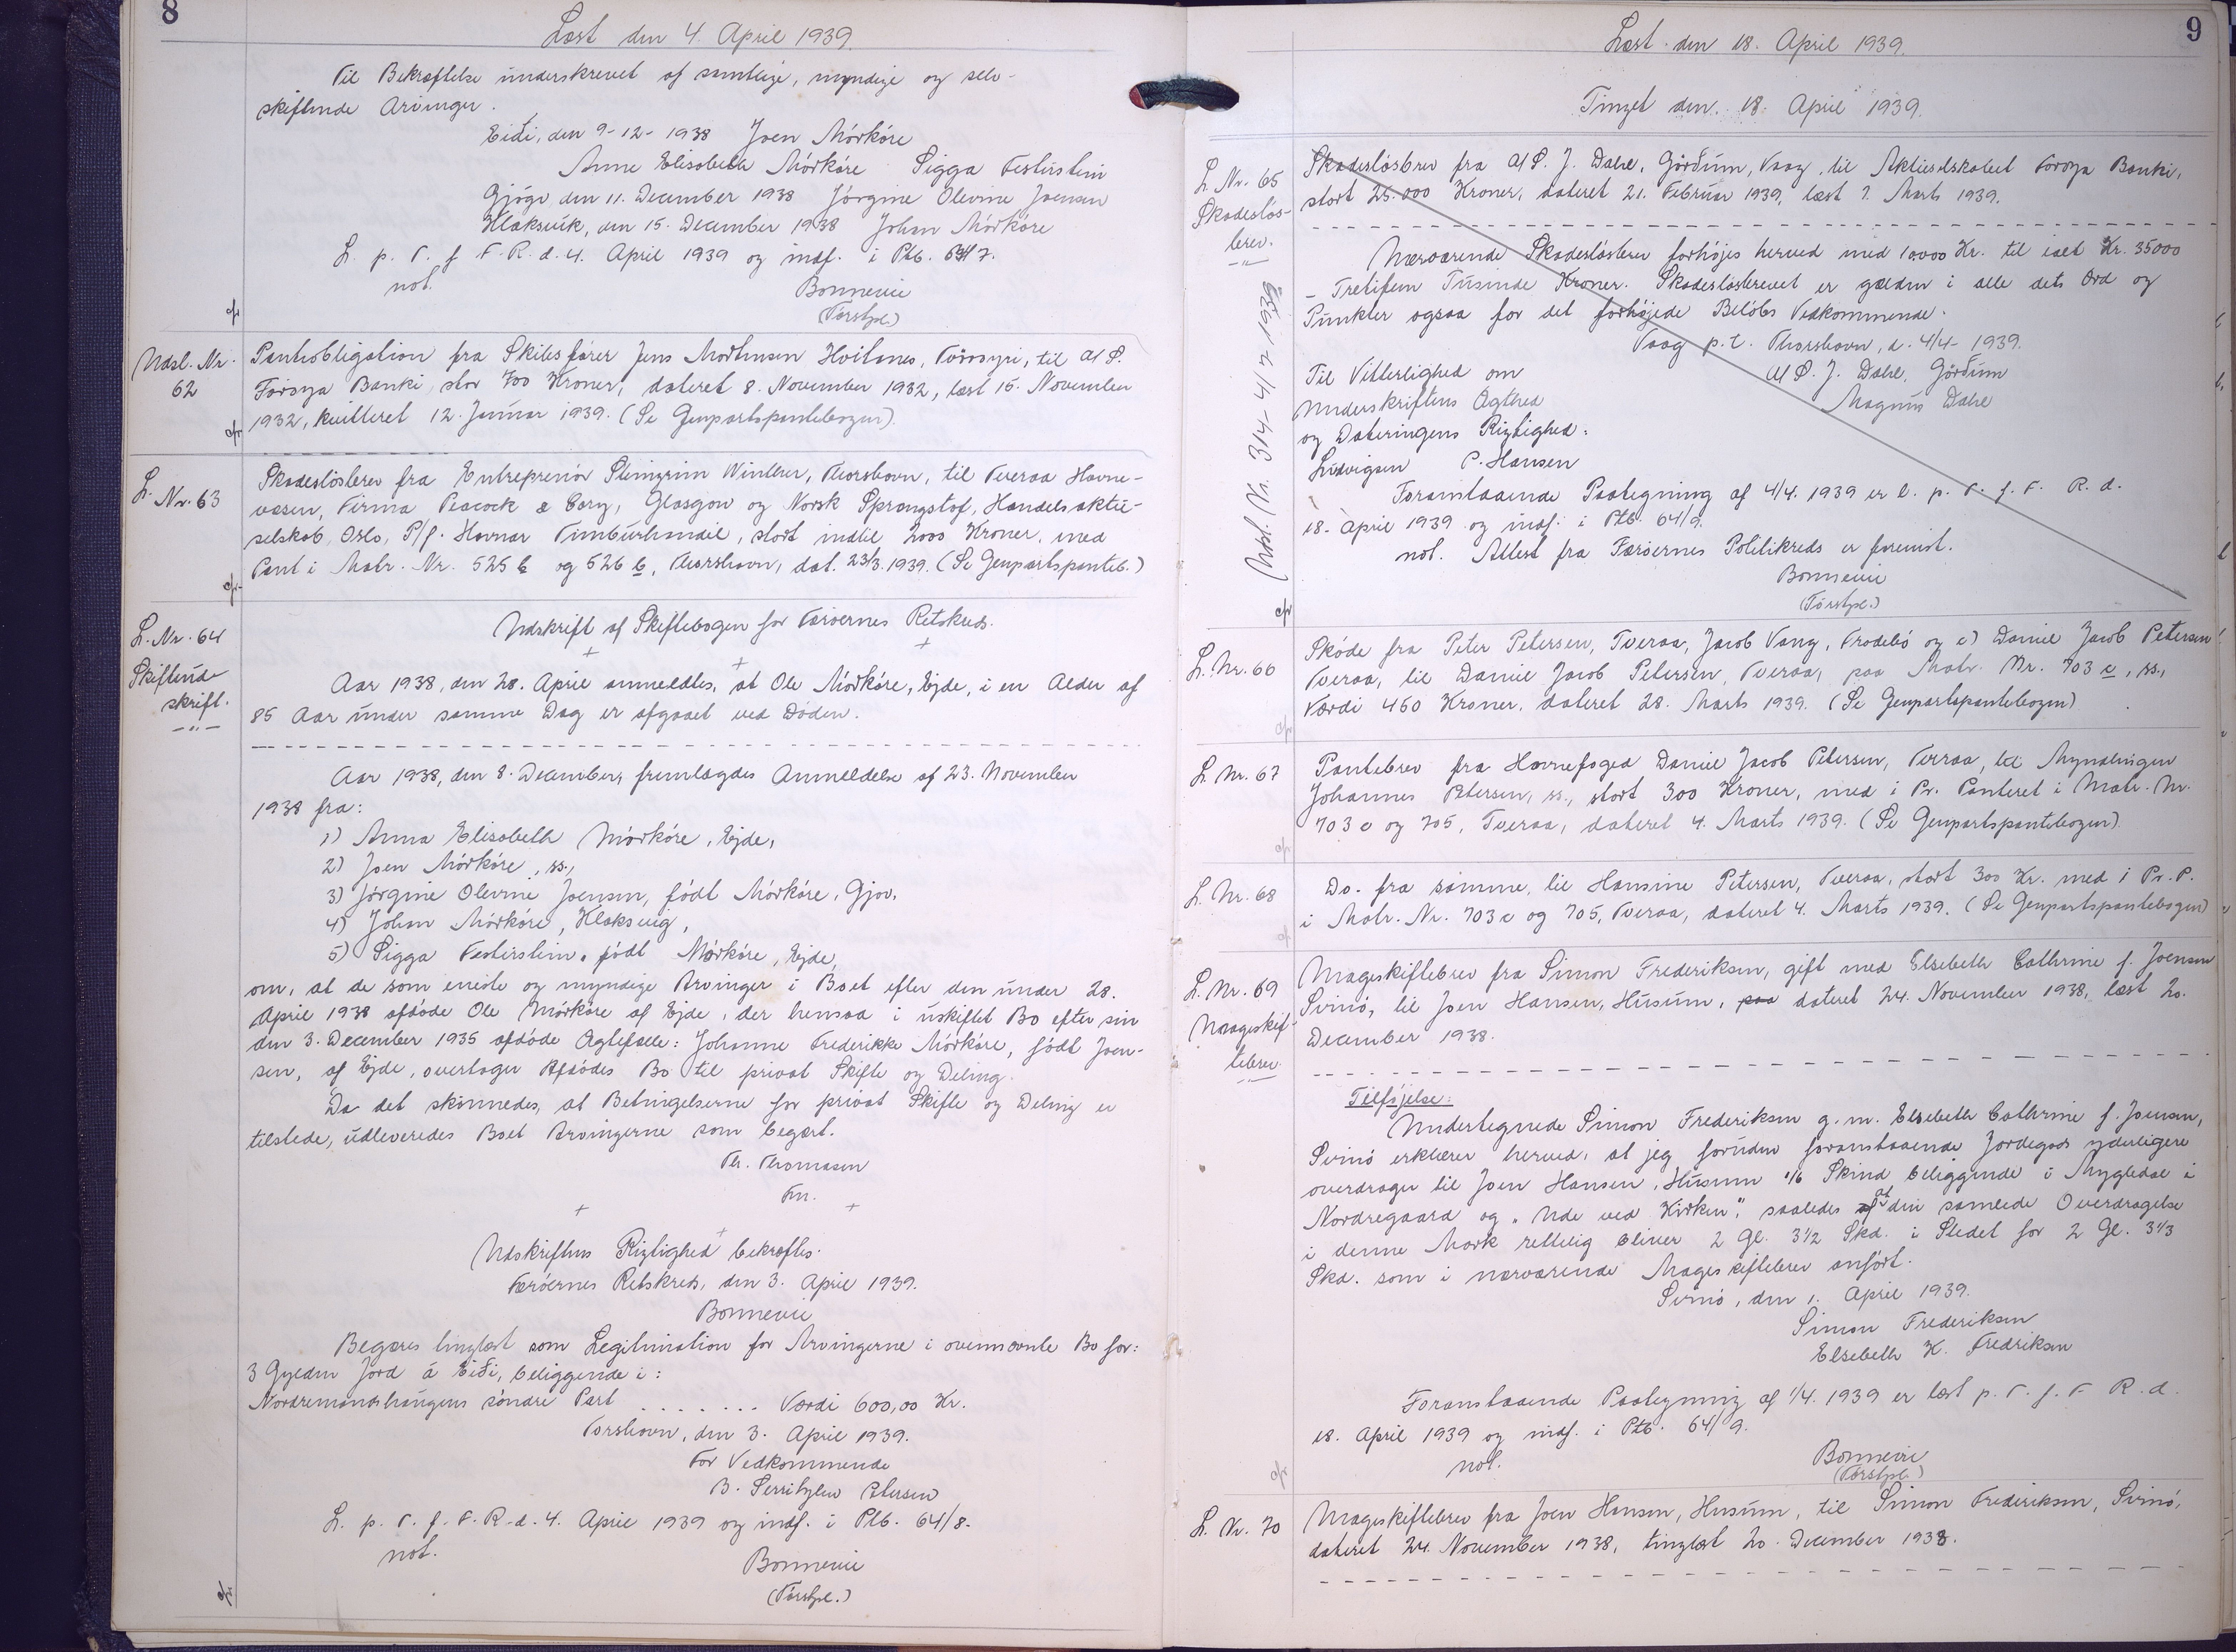 8
Læst den 4. April 1939.
Til Bekræftelse underskrevet af samtlige, myndige og selv-
skiftende Arvinger.
Eiði, den 9-12-1938 Joen Mórkóre
Anne Elisabeth Mórkóre Sigga Festirstein
Gjógv den 11. December 1938 Jórgine Olevine Joensen
Klaksvik, den 15. December 1938 Johan Mórkóre
L. p. T. f F. R. d. 4. April 1939 og indf. i Ptb. 64/7.
not.
Bonnevie
(Fórstpl.)
Udsl. Nr. 62
Panteobligation fra Skibsfører Jens Mortensen Hvitanes, Fóroyri, til A/S.
Fóroya Banki, stor 700 Kroner, dateret 8. November 1932, læst 15. November
1932, kvitteret 12. Januar 1939. (Se Genpartspantebogen).
L. Nr. 63
Skadeslósbrev fra Entreprenór Steingrim Winther, Thorshavn, til Tveraa Havne-
væsen, Firma Peacock & Bery, Glasgow og Norsk Sprængstof, Handelsaktie-
selskab, Oslo, P/f. Havnar Timburhandil, stort indtil 2000 Kroner, med
Pant i Matr. Nr. 525 b og 526 b, Thorshavn, dat. 23/3. 1939. (Se Genpartspanteb.)
L. Nr. 64
Skiftende
skrift.
Udskrift af Skiftebogen for Færóernes Retskreds.
Aar 1938, den 28. April anmeldtes, at Ole Mórkóre, Ejde, i en Alder af
85 Aar under samme Dag er afgaaet ved Dóden.
Aar 1938, den 8. December, fremlagdes Anmeldelse af 23. November
1938 fra:
1) Anna Elisabeth Mórkóre, Ejde,
2) Joen Mórkóre, ss.,
3) Jórgine Olevine Joensen, födt Mórkóre, Gjov,
4) Johan Mórkóre, Klaksvig,
5) Sigga Festirstein, födt Mórkóre, Ejde,
om, at de som eneste og myndige Arvinger i Boet efter den under 28.
April 1938 afdóde Ole Mórkóre af Ejde, der hensad i uskiftet Bo efter sin
den 3. December 1935 afdóde Ægtefælle: Johanne Frederikke Mórkóre, födt Joen-
sen, af Ejde, overtager Afdódes Bo til privat Skifte og Deling.
Da det skónnedes, at Betingelserne for privat Skifte og Deling er
tilstede, udleveredes Boet Arvingerne som begært.
Th. Thomasen
Fm.
Udskriftens Rigtighed bekræftes.
Færóernes Retskreds, den 3. April 1939.
Bonnevie
Begæres tinglæst som Legitimation for Arvingerne i ovennævnte Bo for:
3 Gylden Jord á Eiði, beliggende i:
Nordremandshaugens sóndre Part . . . . . . . Værdi 600,00 Kr.
Torshavn, den 3. April 1939.
For Vedkommende
B. Serritzlew Petersen
L. p. T. f. F. R. d. 4. April 1939 og indf. i Ptb. 64/8.
not.
Bonnevie
(Fórstpl.)
9
Læst den 18. April 1939.
Tinget den 18. April 1939.
L. Nr. 65
Skadeslós-
brev.
Udsl. Nr. 314 - 4/7 1939
Skadeslósbrev fra A/S. J. Dahl, Górðum, Vaag, til Aktieselskabet Fóroya Banki,
stort 25.000 Kroner, dateret 21. Februar 1939, læst 7. Marts 1939.
Nærværende Skadeslósbrev forhójes herved med 10000 Kr. til ialt Kr. 35000
- Tretifem Tusinde Kroner. Skadeslósbrevet er gælden i alle dets Ord og
Punkter ogsaa for det forhójede Belóbs Vedkommende.
Vaag p.t. Thorshavn, d. 4/4- 1939.
Til Vitterlighed om
A/S. J. Dahl, Górðum
Underskriftens Ægthed
Magnus Dahl
og Dateringens Rigtighed:
Ludvigsen P. Hansen
Foranstaaende Paategning af 4/4. 1939 er l. p. T. f. F. R. d.
18. April 1939 og indf. i Ptb. 64/9.
not. Attest fra Færóernes Politikreds er forevist.
Bonnevie
(Fórstpl.)
L. Nr. 66
Skóde fra Peter Petersen, Tveraa, Jacob Vang, Frodebó og c) Daniel Jacob Petersen,
Tveraa, til Daniel Jacob Petersen, Tveraa, paa Matr. Nr. 703 c, ss.,
Værdi 460 Kroner, dateret 28. Marts 1939. (Se Genpartspantebogen)
L. Nr. 67
Pantebrev fra Havnefoged Daniel Jacob Petersen, Tveraa, til Myndlingen
Johannes Petersen, ss., stort 300 Kroner, med 1 Pr. Panteret i Matr. Nr.
703 c og 705, Tveraa, dateret 4. Marts 1939. (Se Genpartspantebogen).
L. Nr. 68
Do. fra samme, til Hansine Petersen, Tveraa, stort 300 Kr. med 1 Pr. P.
i Matr. Nr. 703 c og 705, Tveraa, dateret 4. Marts 1939. (Se Genpartspantebogen)
L. Nr. 69
Mageskif-
tebrev.
Mageskiftebrev fra Simon Frederiksen, gift med Elsebeth Cathrine f. Joensen
Svinó, til Joen Hansen, Húsum, paa dateret 24. November 1938, læst 20.
December 1938.
Tilfójelse:
Undertegnede Simon Frederiksen g. m. Elsebeth Cathrine f. Joensen,
Svinó erklærer herved, at jeg foruden foranstaaende Jordegods yderligere
overdrager til Joen Hansen, Húsum 1/6 Skind beliggende i Mygledal i
Nordregaard og "Ude ved Kirken", saaledes af at den samlede Overdragelse
i denne Mark rettelig bliver 2 Gl. 3 1/2 Skd. i Stedet for 2 Gl. 3 1/3
Skd. som i nærværende Mageskiftebrev anfórt.
Svinó, den 1. April 1939.
Simon Frederiksen
Elsebeth K. Fredriksen
Foranstaaende Paategning af 1/4. 1939 er læst p. T. f. F R. d.
18. April 1939 og indf. i Ptb. 64/9.
not.
Bonnevie
(Fórstpl.)
L. Nr. 70
Mageskiftebrev fra Joen Hansen, Husum, til Simon Frederiksen, Svinó,
dateret 24. November 1938, tinglæst 20. December 1938.